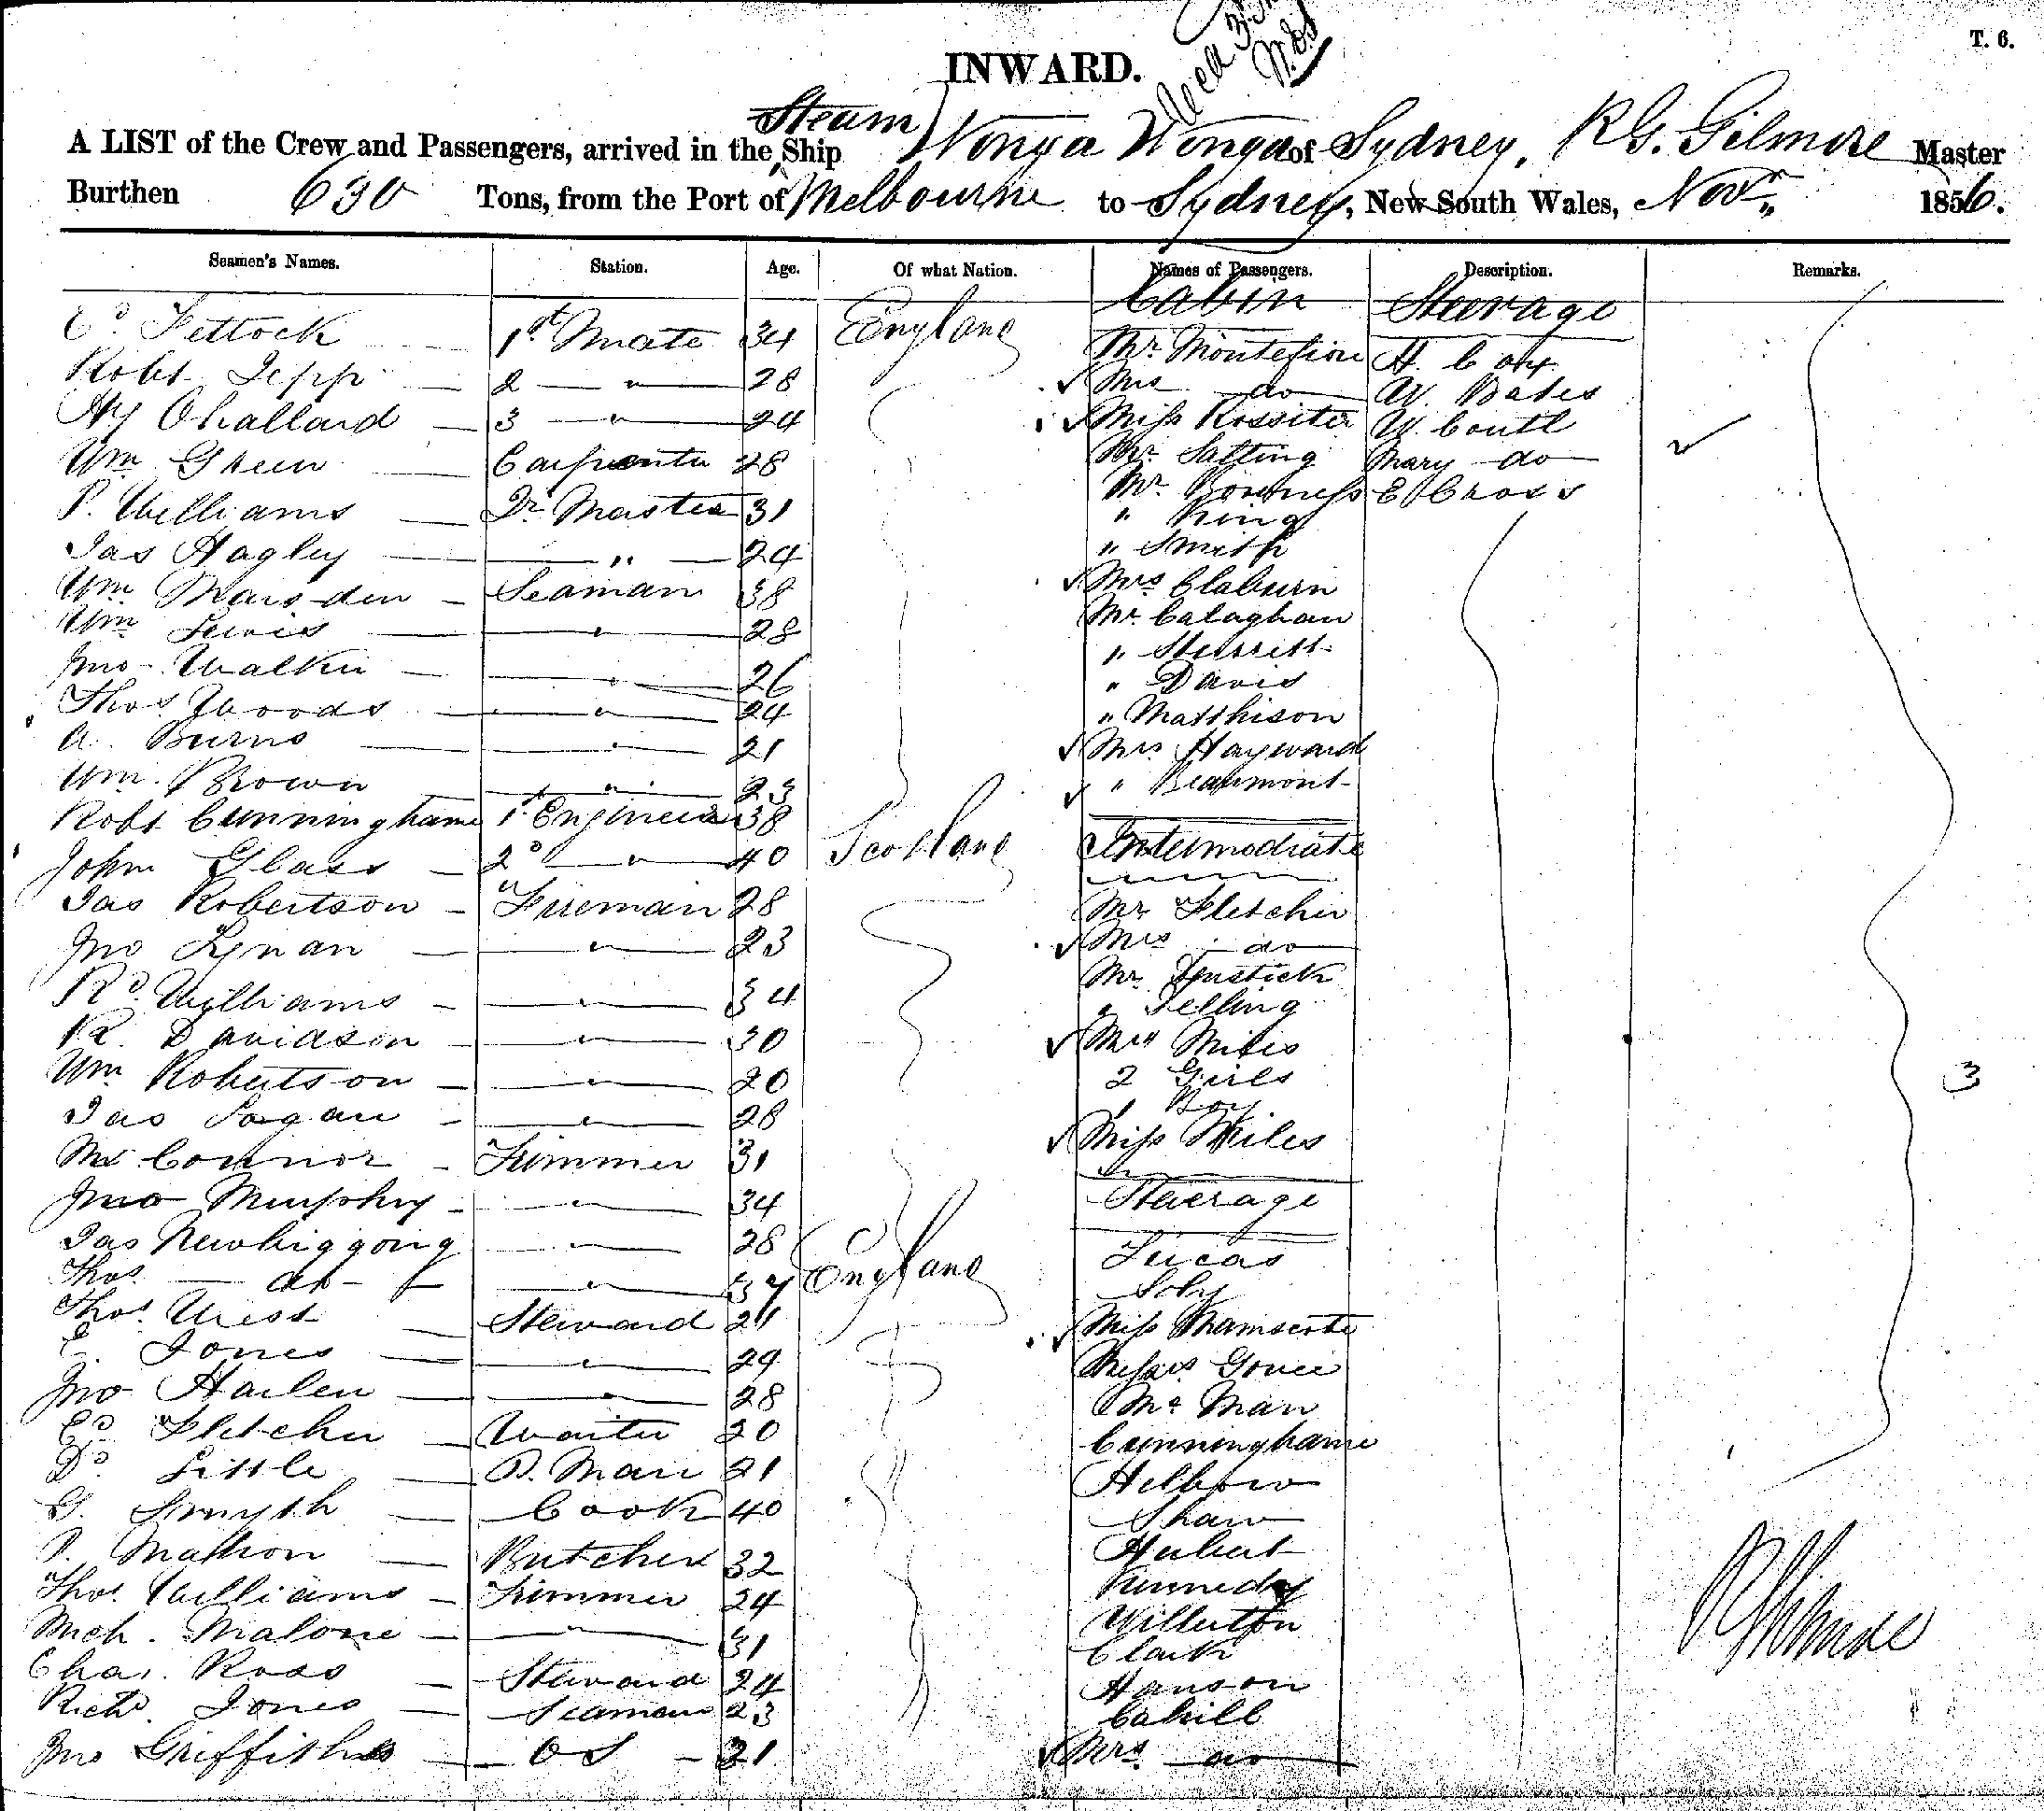 T. 6.
INWARD.
Steam
A LIST of the Crew and Passengers, arrived in the Ship Wonga Wonga of Sydney, RG. Gilmore Master
Burthen 630 Tons, from the Port of Melbourne to Sydney, New South Wales, Novr 1856.
Seamen's Names. Station. Age. Of what Nation. Names of Passengers. Description. Remarks.
Cabin Steerage
Ed Fettock 1st Mate 34 England Mr Montefiore H. Cox
Robt Jepp 2 " 28 Mrs do W. Bates
Hy Challard 3 " 24 Miss Rossiter W. Coutl
Wm Green Carpenter 28 Mr Salting Mary do
P. Williams Qr Master 31 Mr Bowness E Cross
Jas Hagley " 24 " King
" Smith
Wm Marsden Seaman 38 Mrs Claburn
Wm Lewis " 28 Mr Calaghan
Jno Walker " 26 " Sturritt
" Davis
Thos Woods " 24 " Matthison
A. Burns " 21 Mrs Hayward
Wm Brown " 23 " Beaumont
Robt Cunninghame 1st Engineer 38
John Glass 2d " 40 Scotland Intermediate
Jas Robertson Fireman 28 Mr Fletcher
Jno Lynan " 23 Mrs do
Mr
Rd Williams " 34 " Selling
R. Davidson " 30 Mrs Miles
Wm Robertson " 20 2 Girls
3
Jas Logan " 28 1 Boy
Miss Miles
Mc Connor Trimmer 31
Jno Murphy " 34 Steerage
Jas Newbiggong " 28 Lucas
Thos do " 37 England Soby
Thos West Steward 24 Miss
E. Jones " 29 Messrs
Jno Harlen " 28 Mc Man
Ed Fletcher Waiter 20 Cunninghame
Dd Little P. Man 21 Helbow
G. Smyth Cook 40 Shaw
P. Mallion Butcher 32 Hubert
Thos Williams Trimmer 24 Kennedy
Mich. Malone " 31 Willerton
Clark
Chas. Ross Steward 24 Hanson
Richd. Jones Seaman 23 Cahill
Jno Griffiths O S 21 Mrs do
RGilmore